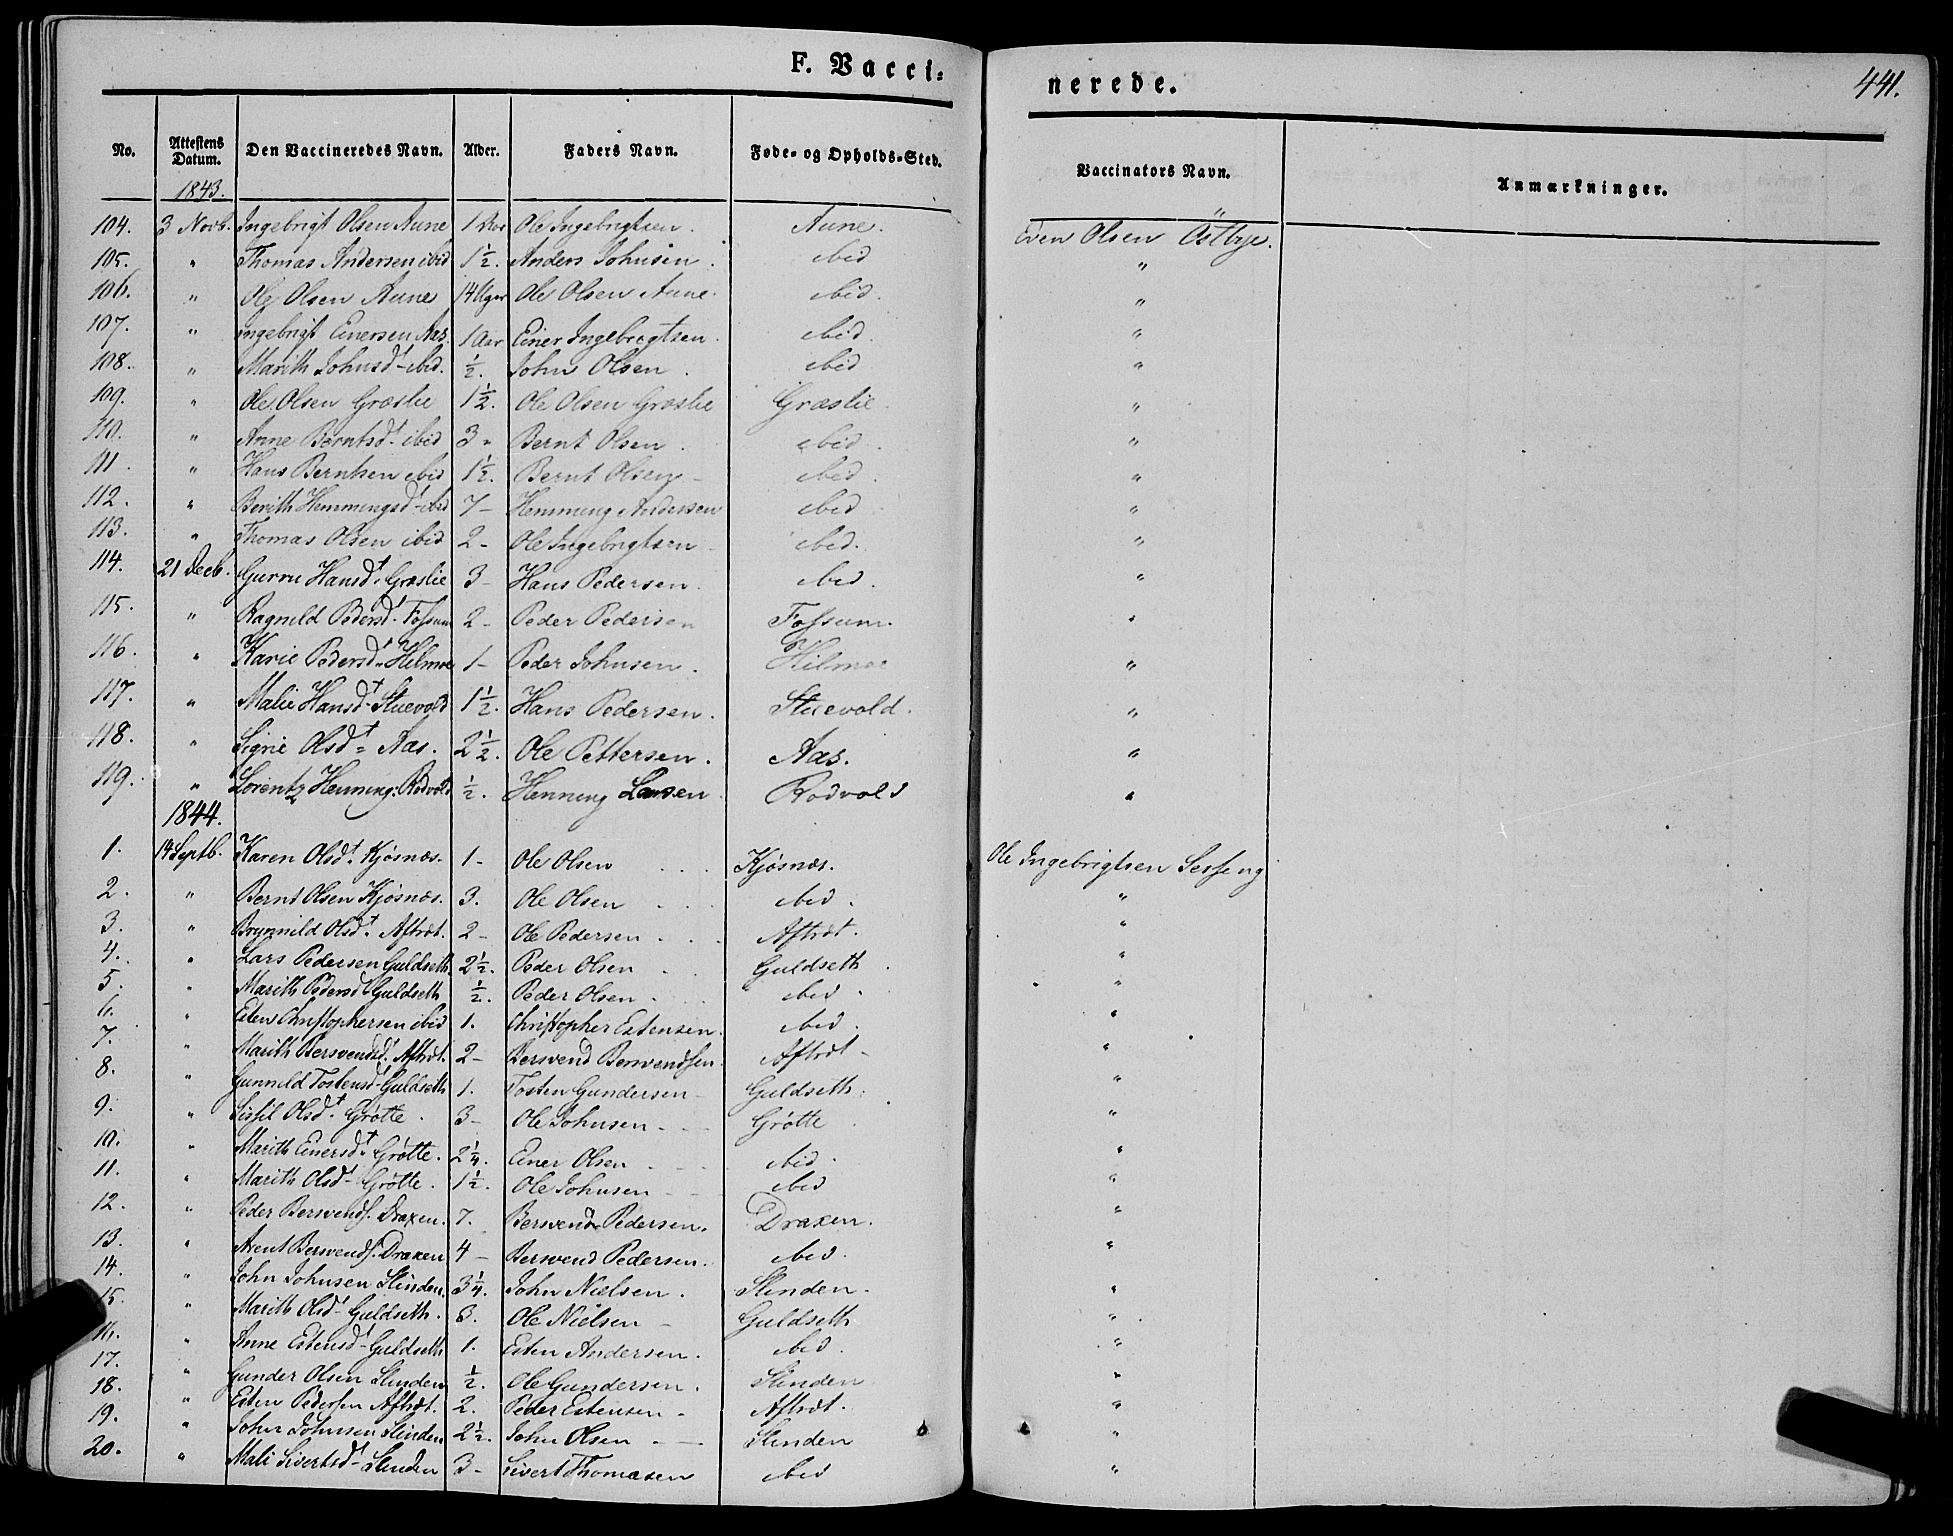 F. Vacci-
nerede.
441.
No. Attestens Datum. Den Vaccineredes Navn. Alder. Faders Navn. Føde- og Opholds-Sted. Vaccinators Navn. Anmærkninger.
1843.
104. 3 Novb. Ingebrigt Olsen Aune 1 Aar Ole Ingebrigtsen. Aune. Even Olsen Östbye.
105. " Thomas Andersen ibid 1½. Anders Johnsen. ibid "
106. " Ole Olsen Aune 14 Uger Ole Olsen Aune. ibid. "
107. " Ingebrigt Einersen Aas. 1 Aar Einer Ingebrigtsen. ibid. "
108. " Marith Johnsdt ibid. ½. John Olsen. ibid "
109. " Ole Olsen Græslie 1½. Ole Olsen Græslie Græslie. "
110. " Anne Berntsdt ibid 3 " Bernt Olsen. ibid. "
111. " Hans Berntsen ibid 1½. Bernt Olsen - ibid. "
112. " Berith Hemmingsdt ibid 7 - Hemming Andersen ibid "
113. " Thomas Olsen ibid 2 - Ole Ingebrigtsen - ibid. "
114. 21 Decb. Gurru Hansdt. Græslie 3 - Hans Pedersen. ibid. "
115. " Ragnild Pedersdt. Fossum 2 - Peder Pedersen Fossum. "
116. " Karie Pedersdt. Hilmoe 1 - Peder Johnsen. Hilmoe "
117. " Malie Hansdt Stuevold 1½. Hans Pedersen. Stuevold. "
118. " Sigrie Olsdt = Aas. 2½. Ole Pettersen. Aas. "
119. " Lorentz Henning: Rodvold ½. Henning Larsen Rodvold "
1844.
1. 14 Septb. Karen Olsdt. Kjøsnæs. 1 - Ole Olsen Kjøsnæs. Ole Ingebrigtsen Sesseng
2. " Bernt Olsen Kjøsnæs. 3. Ole Olsen ibid. "
3. " Brynnild Olsdt. Aftræt. 2 - Ole Pedersen Aftræt. "
4. " Lars Pedersen Guldseth. 2½. Peder Olsen Guldseth. "
5. " Marith Pedersdt Guldseth ½. Peder Olsen ibid. "
6. " Esten Christophersen ibid 1. Christopher Estensen. ibid. "
7. " Marith Bersvendsdt. Aftræt. 2 - Bersvend Bersvendsen. Aftræt - "
8. " Gunnild Tostensdt Guldseth 1. Tosten Gundersen - Guldseth. "
9. " Sissil Olsdt. Grøtte. 3 - Ole Johnsen - Grøtte. "
10. " Marith Einersdt. Grøtte. 2¼. Einer Olsen ibid. "
11. " Marith Olsdt Grøtte. 1½. Ole Johnsen - ibid "
12. " Peder Bersvends. Draxen. 7. Bersvend Pedersen. Draxen. "
13. " Arent Bersvends. Draxen 4 - Bersvend Pedersen. ibid. "
14. " John Johnsen Slinden. 3¼. John Nielsen. Slinden. "
15. " Marith Olsdt Guldseth. 8. Ole Nielsen - Guldseth "
16. " Anne Estensdt Guldseth 1. Esten Andersen. ibid. "
17. " Gunder Olsen Slinden ½. Ole Gundersen. Slinden "
18. " Esten Pedersen Aftræt. 2. Peder Estensen - Aftræt. "
19. " John Johnsen Slinden 2½. John Olsen - Slinden "
20. " Mali Sivertsdt Slinden 3 - Sivert Thomasen ibid "